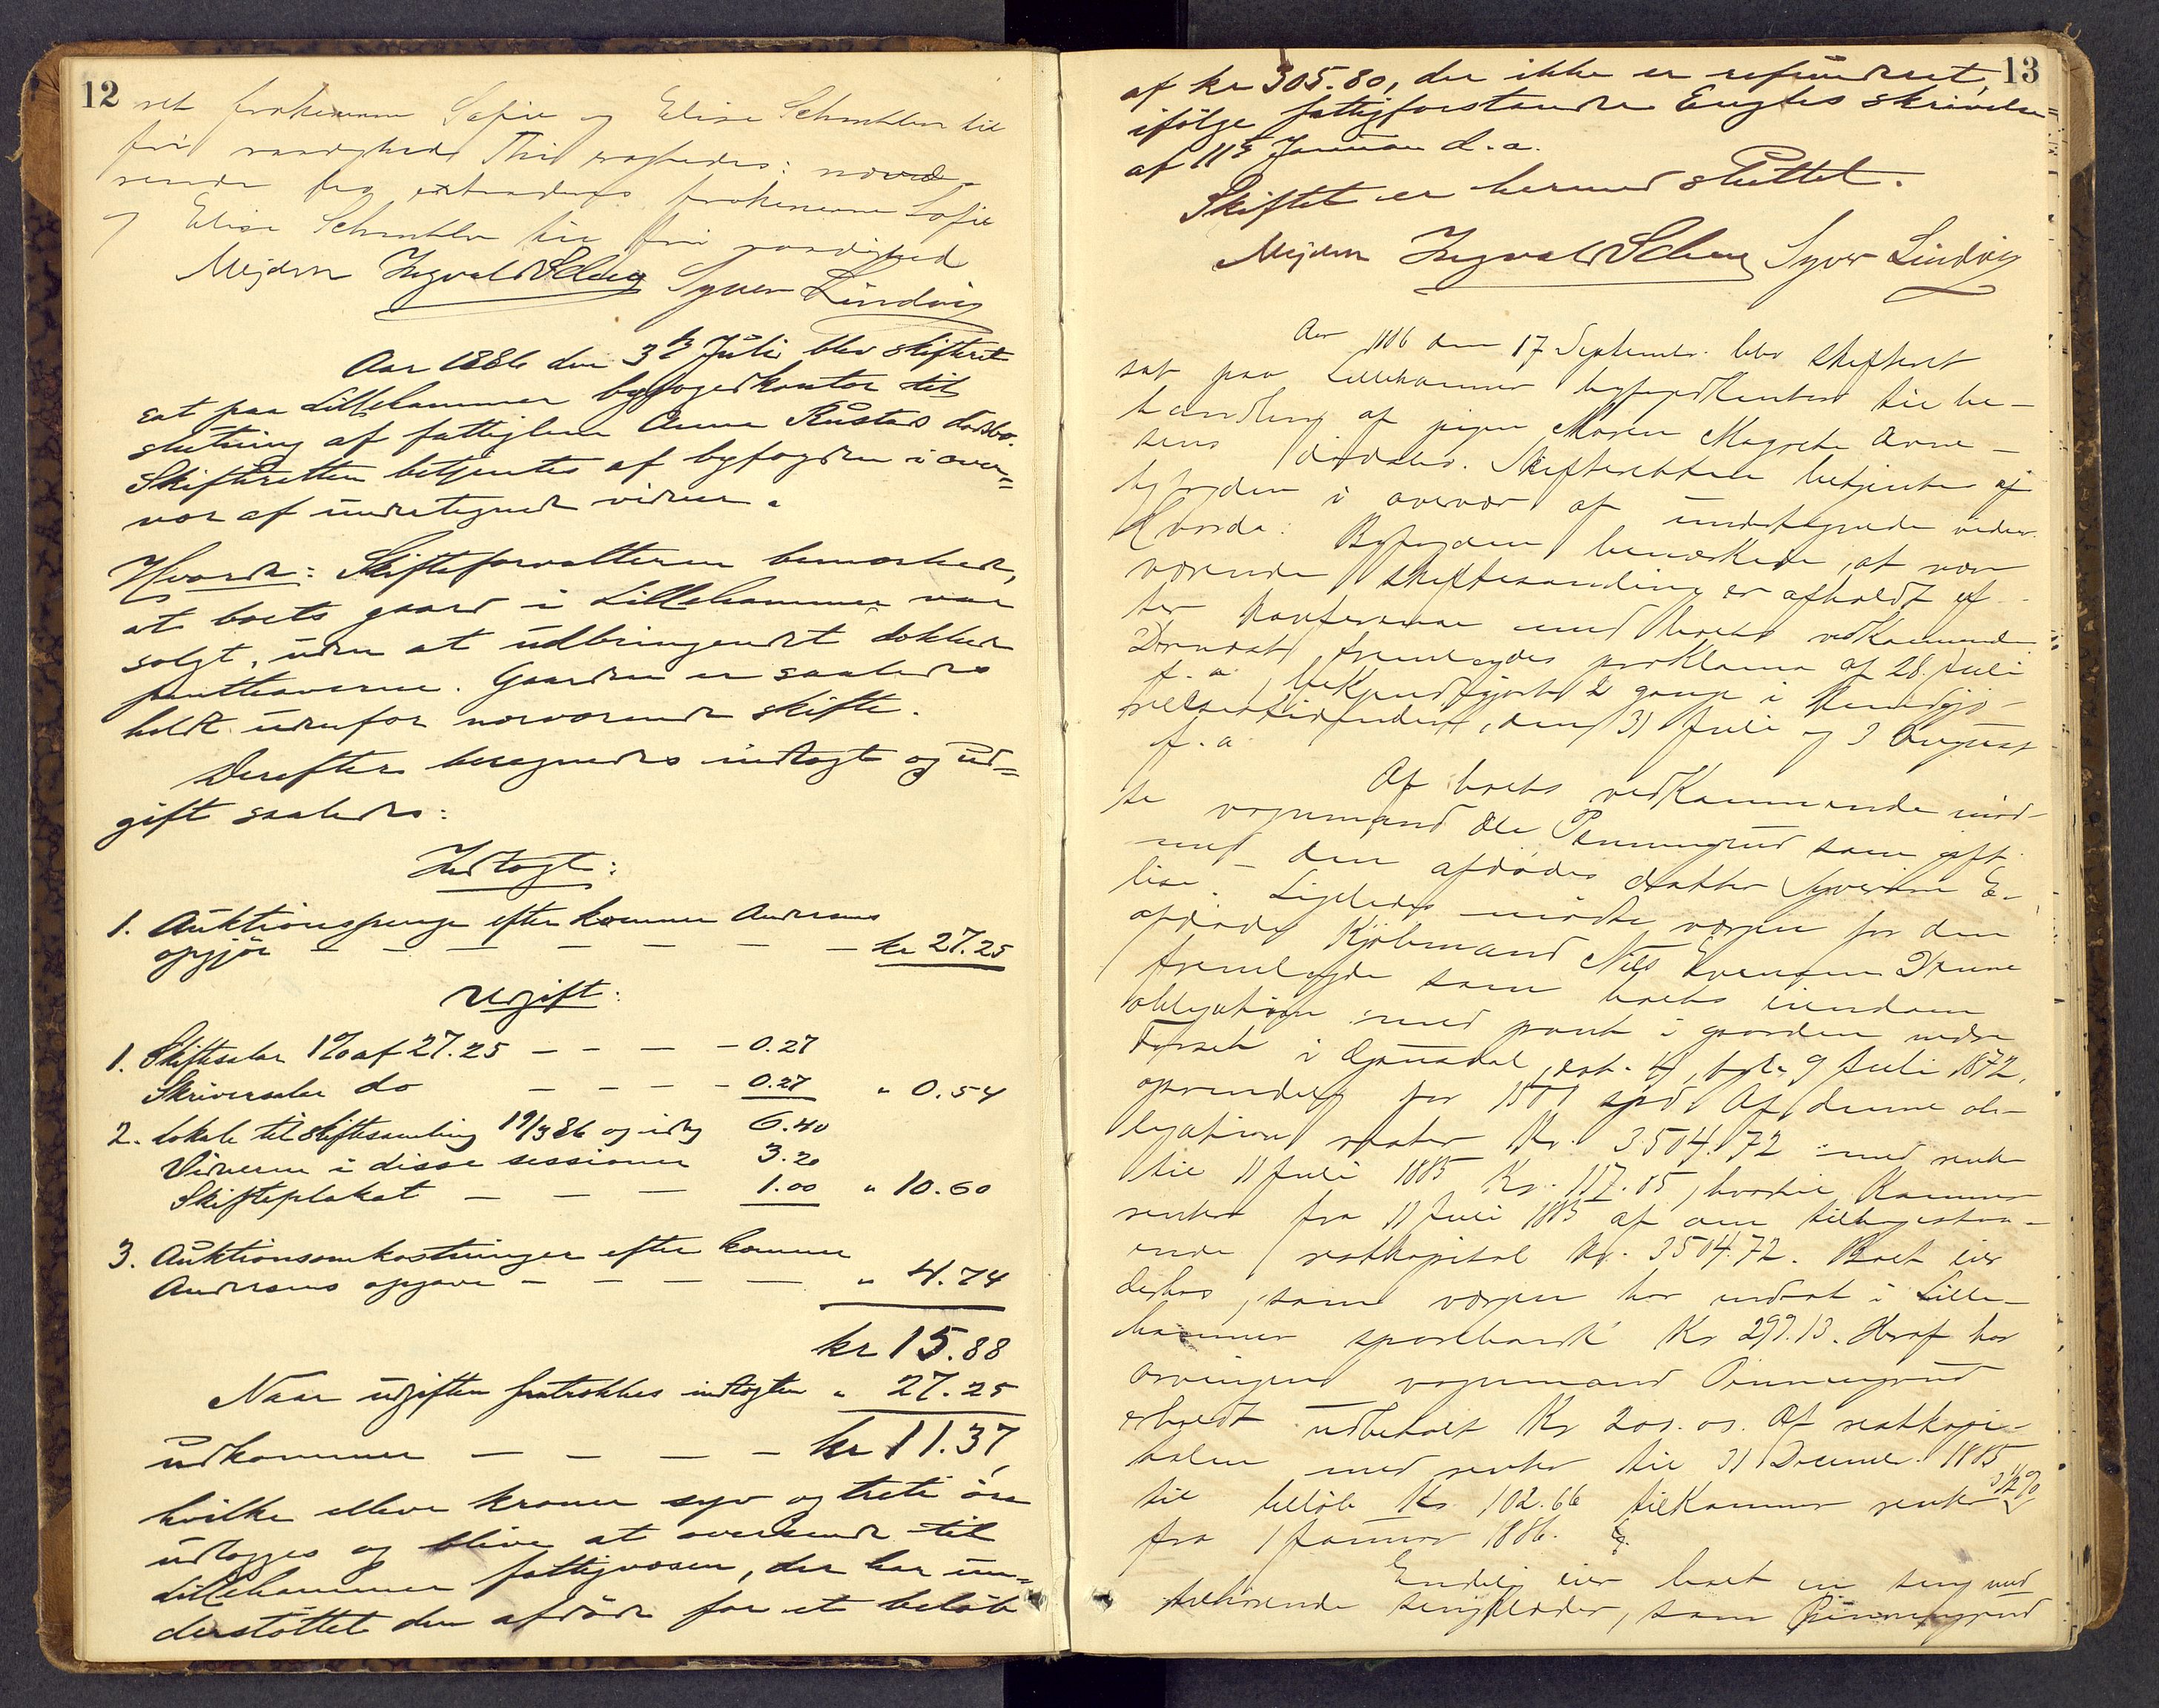 12
ret frøkenerne Sofie og Elise Schmbler til
fri raadighed. Thi eragtedes: nærvæ-
rende bo extraderes frøkenerne Sofie
og Elise Schmbler til fri raadighed
Mejdell Ingvald Schey Syver Lindvig
Aar 1886 den 3die Juli blev skifteret
sat paa Lillehammer byfogedkontor til
slutning af fattiglem Anne Rustads dødsbo.
Skifteretten betjentes af byfogden i over=
vær af undertegnede vidner.
Hvorda: Skifteforvalteren bemærkede,
at boets gaard i Lillehammer var
solgt, uden at udbringendet dækkede
panthaverne. Gaarden er saaledes
holdt udenfor nærværende skifte.
Derefter beregnedes indtægt og ud=
gift saaledes:
Indtægt:
1. Auktionspenge efter kæmner Andersens
opgjør — — — — — — — kr 27.25
Udgift:
1. Skiftesalær 1% af 27.25 — — — — 0.27
Skriversalær do — — — — 0.27 " 0.54
2. Lokale til skiftesamling 19/3 86 og idag 6.40
Vidnerne i disse sessioner 3.20
Skifteplakat — — — 1.00 " 10.60
3. Auktionsomkostninger efter kæmner
Andersens opgave — — — — " 4.74
kr 15.88
Naar udgiften fratrækkes indtægten " 27.25
udkommer — — — — kr 11.37,
hvilke elleve kroner syv og treti øre
udlægges og blive at oversende til
Lillehammer fattigvæsen, der har un=
derstøttet den afdøde for et beløb
13
af kr 305.80, der ikke er refunderet,
ifølge fattigforstander Engebs skrivelse
af 11te Januar d. a.
Skiftet er hermed sluttet.
Mejdell Ingvald Schey Syver Lindvig
Aar 1886 den 17 September blev skifteret
sat paa Lillehammer byfogedkontor til be-
handling af pigen Maren Magrete Arne-
sens dødsbo. Skifteretten betjentes af
byfogden i overvær af undertegnede vidner.
Hvorda: Byfogden bemærkede, at nær
værende skiftesamling er afholdt ef-
ter konferance med boets vedkommende
Dernæst fremlagdes proklama af 28. Juli
d. a. bekjendtgjort 2 gange i Kundgjø-
relsestidenden, den 31 Juli og 3 August
d. a.
Af boets vedkommende mød-
te vognmand Ole Pinnerud som gift
med den afdødes datter Syverine E-
lise. Ligeledes mødte værgen for den
afdøde Kjøbmand Nils Evensen Denne
fremlagde som boets eiendom
obligation med pant i gaarden nedre
i Gausdal, dat. 4, tgl. 9 Juli 1872,
oprindelig for 1500 spd. Af denne ob-
ligation rester Kr. 3.504.72 med rente
til 11 Juli 1885 Kr. 117.85, hvortil kommer
renter fra 11 Juli 1885 af den tilbagestaa-
ende restkapital Kr. 3504.72. Boet eier
derhos, som værgen har indsat i Lille-
hammer sparebank Kr 297.13. Heraf har
arvingen vognmand Pinnerud
erholdt udbetalt Kr 200.00. Af restkapi-
talen med renter til 31 December 1885
til beløb Kr. 102.66 tilkommer renter 3 1/2 %
fra 1 Januar 1886.
Endelig eier boet en seng med
tilhørende sengklæder, som Pinnerud